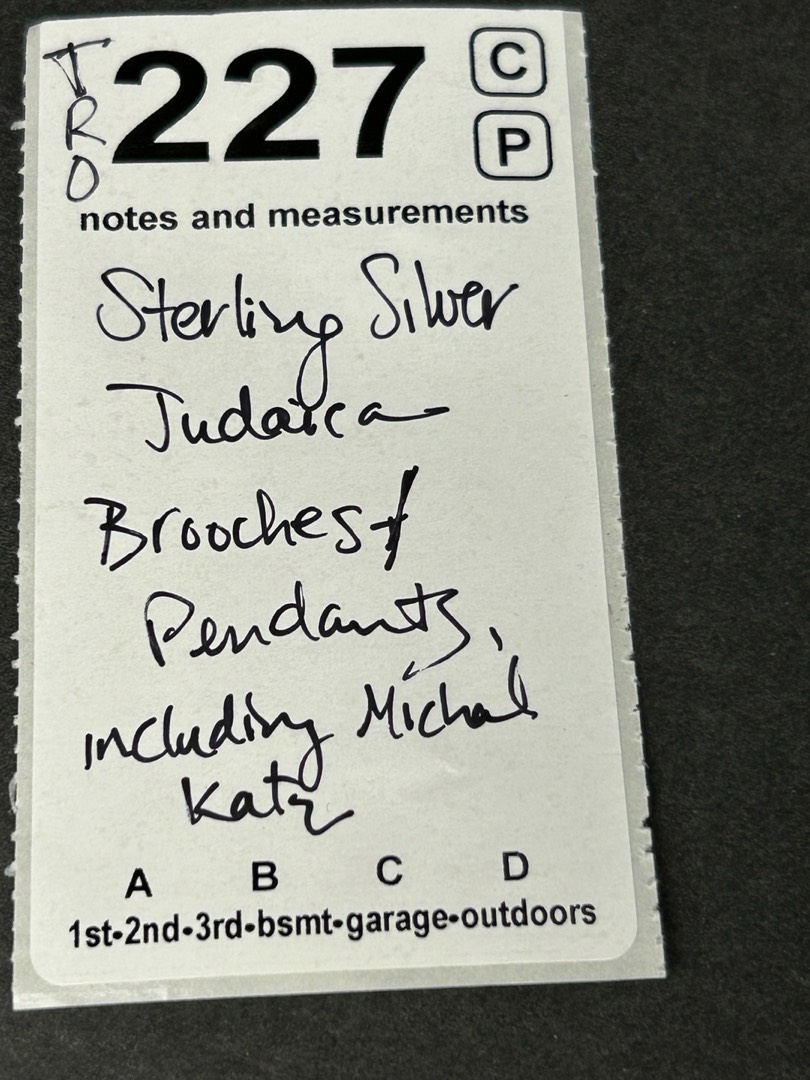 TRO 227 C
P
notes and measurements
Sterling Silver
Judaica
Brooches +
Pendants,
including Michal
Katz
A B C D
1st•2nd•3rd•bsmt•garage•outdoors